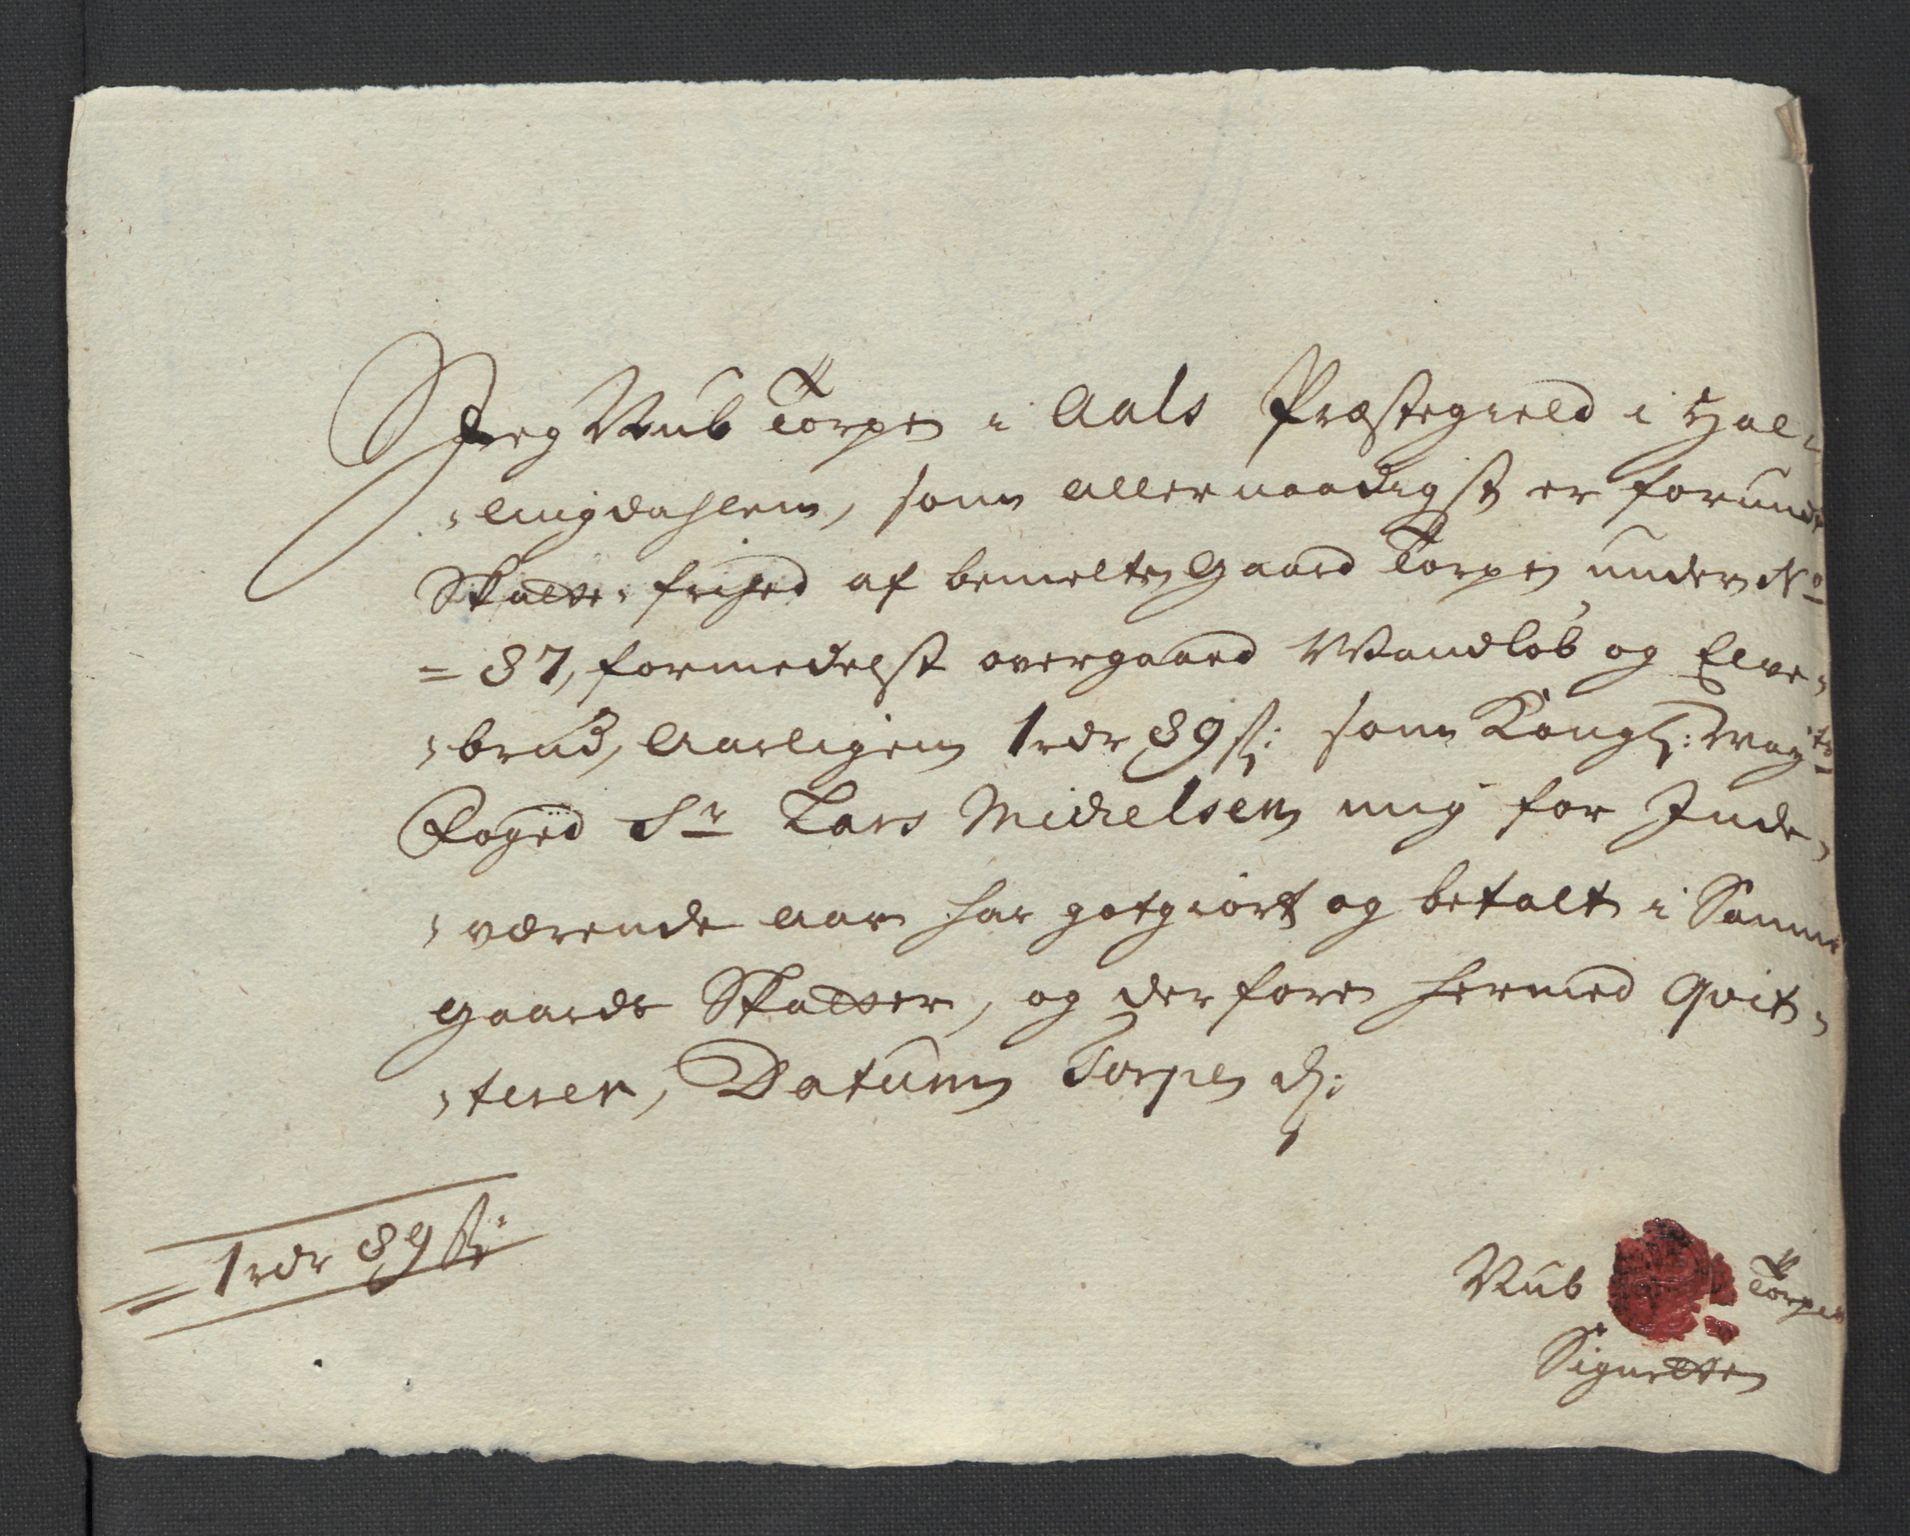 Jeg Rub Torpe i Aals Præstegield i Hal-
-lingdahlen, som allernaadigst er forundt
Skatte-frihed af bemelte gaard Torpe under No
= 87, formedelst overgaaed Wandløb og Elve-
-brud, aarligen 1 rdr 89 s: som Kongl: May:ts
Foged Sr Lars Michelsen mig for Inde-
-værende aar har gotgiort og betalt i Samme
gaards Skatter, og derfore hermed Qvit-
-terer, Datum Torpe d:
= 1 rdr 89 s:
Rub Torpes
Signette